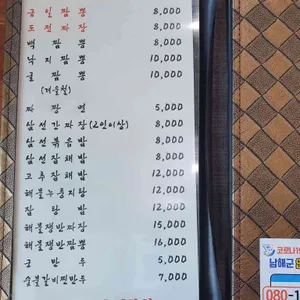 금일짬뽕 8,000
도전짜장 8,000
백짬뽕 8,000
낙지짬뽕 10,000
굴짬뽕 10,000
(겨울철)
짜짬면 5,000
삼선간짜장(2인이상) 8,000
삼선볶음밥 8,000
삼선잡채밥 8,000
고추잡채밥 12,000
해물누룽지탕 12,000
잡탕밥 12,000
해물쟁반짜장 15,000
해물쟁반짬뽕 16,000
군만두 5,000
숯불갈비찐만두 7,000
코로나19
남해군
080-1